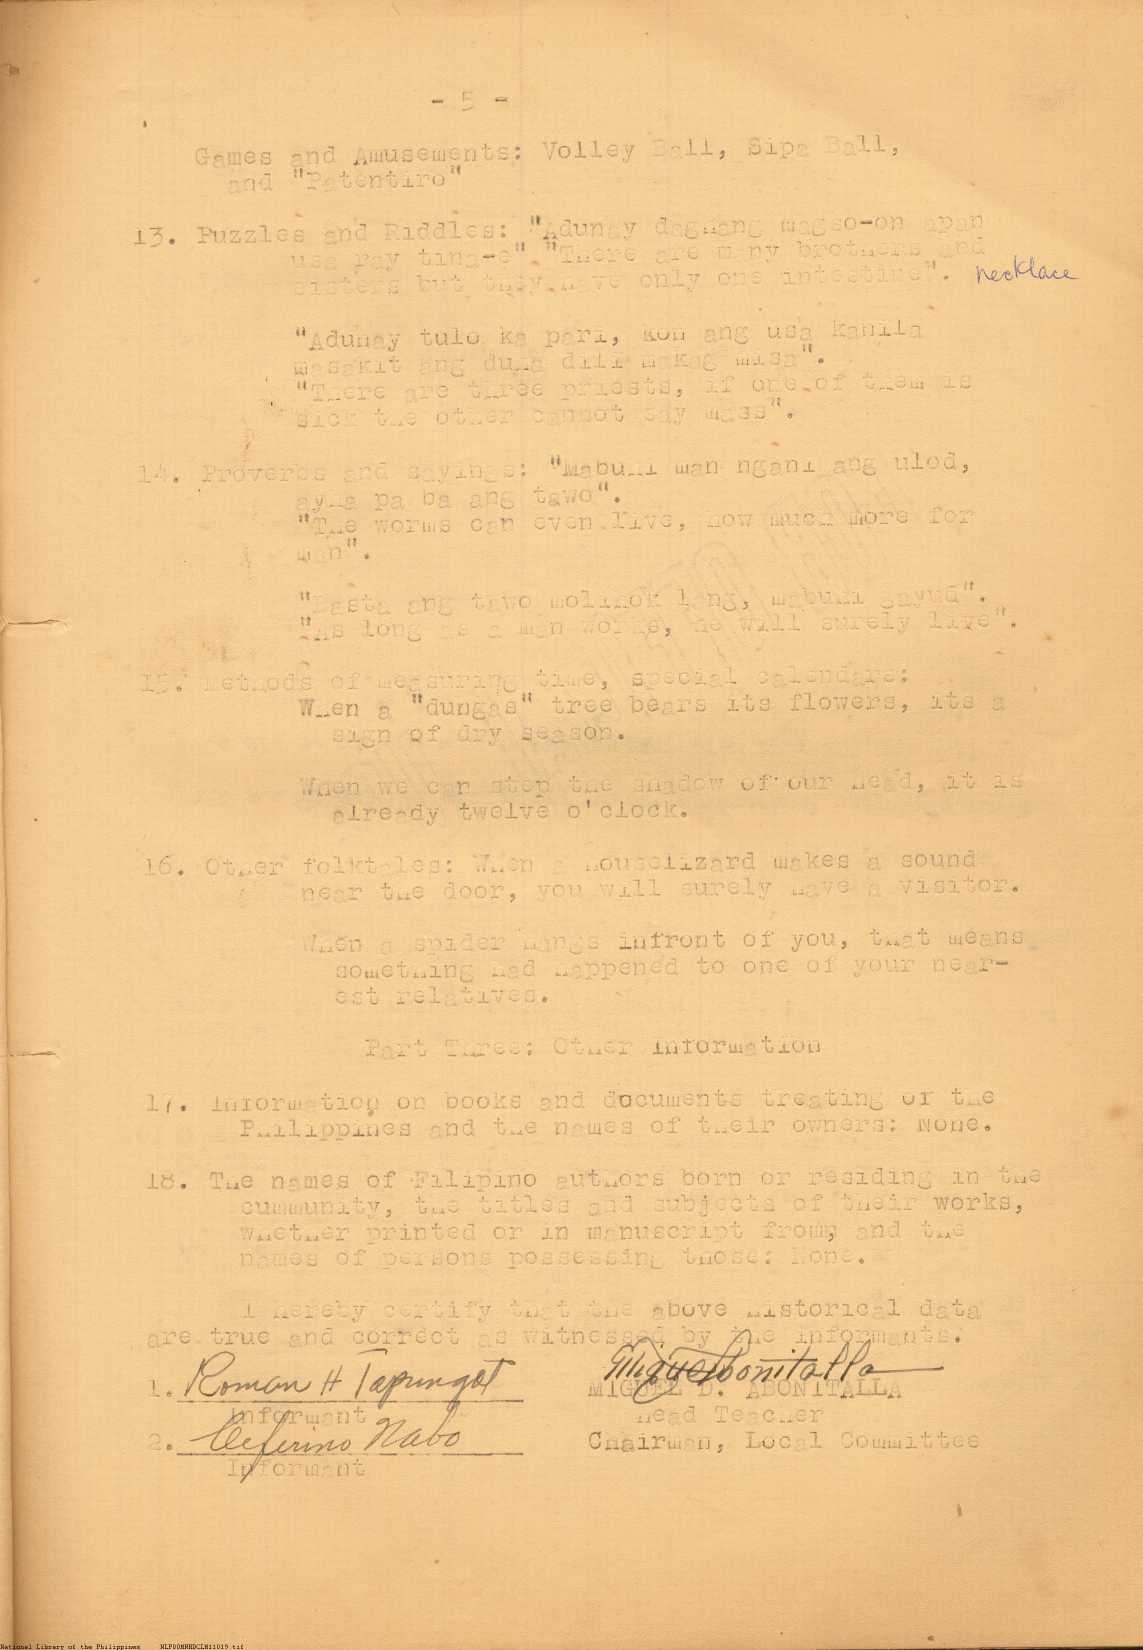 - 5 -
Games and Amusements: Volley Ball, Sipa Ball,
and "Patentiro"
13. Puzzles and Riddles: "Adunay daghang magso-on apan
usa ray tina-e". "There are many brothers and
sisters but they have only one intestine". necklace
"Adunay tulo ka pari, kon ang usa kanila
masakit ang duha dili makag misa".
"There are three priests, if one of them is
sick the other cannot say mass".
14. Proverbs and sayings: "Mabuhi man ngani ang ulod,
ayha pa ba ang tawo".
"The worms can even live, how much more for
man".
"Basta ang tawo molihok lang, mabuhi gayud".
"As long as a man works, he will surely live".
15. Methods of measuring time, special calendars:
When a "dungas" tree bears its flowers, its a
sign of dry season.
When we can step the shadow of our head, it is
already twelve o'clock.
16. Other folktales: When a houselizard makes a sound
near the door, you will surely have a visitor.
When a spider hangs infront of you, that means
something had happened to one of your near-
est relatives.
Part Three: Other Information
17. Information on books and documents treating of the
Philippines and the names of their owners: None.
18. The names of Filipino authors born or residing in the
cummunity, the titles and subjects of their works,
whether printed or in manuscript from, and the
names of persons possessing those: None.
I hereby certify that the above historical data
are true and correct as witnessed by the informants.
1. Roman H Tapungot
Informant
2. Ceferino Nabo
Informant
MiguelDbonitalla
MIGUEL D. ABONITALLA
Head Teacher
Chairman, Local Committee
National Library of the Philippines NLP00MNHDCLM11019.tif